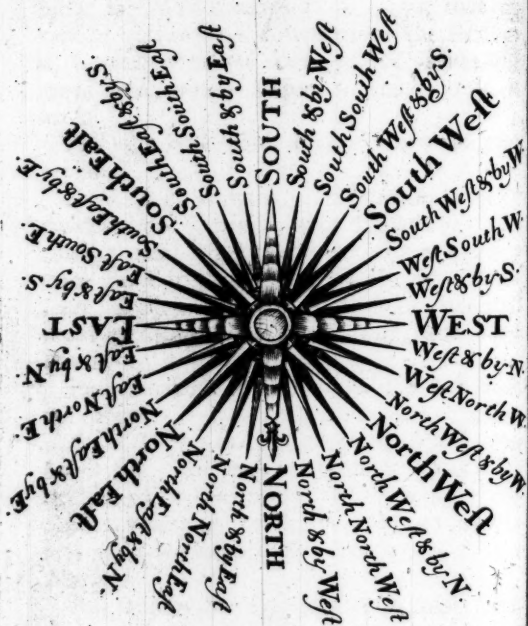 SOUTH
South & by Weſt
South South Weſt
South Weſt & by S.
South Weſt
South Weſt & by W.
Weſt South W.
Weſt & by S.
WEST
Weſt & by N.
Weſt North W.
North Weſt & by W
North Weſt
North Weſt & by N.
North North Weſt
North & by Weſt
NORTH
North & by Eaſt
North North Eaſt
North Eaſt & by N.
North Eaſt
North Eaſt & by E.
Eaſt North E.
Eaſt & by N
EAST
Eaſt & by S.
Eaſt South E.
South Eaſt & by E.
South Eaſt
South Eaſt & by S.
South South Eaſt
South & by Eaſt